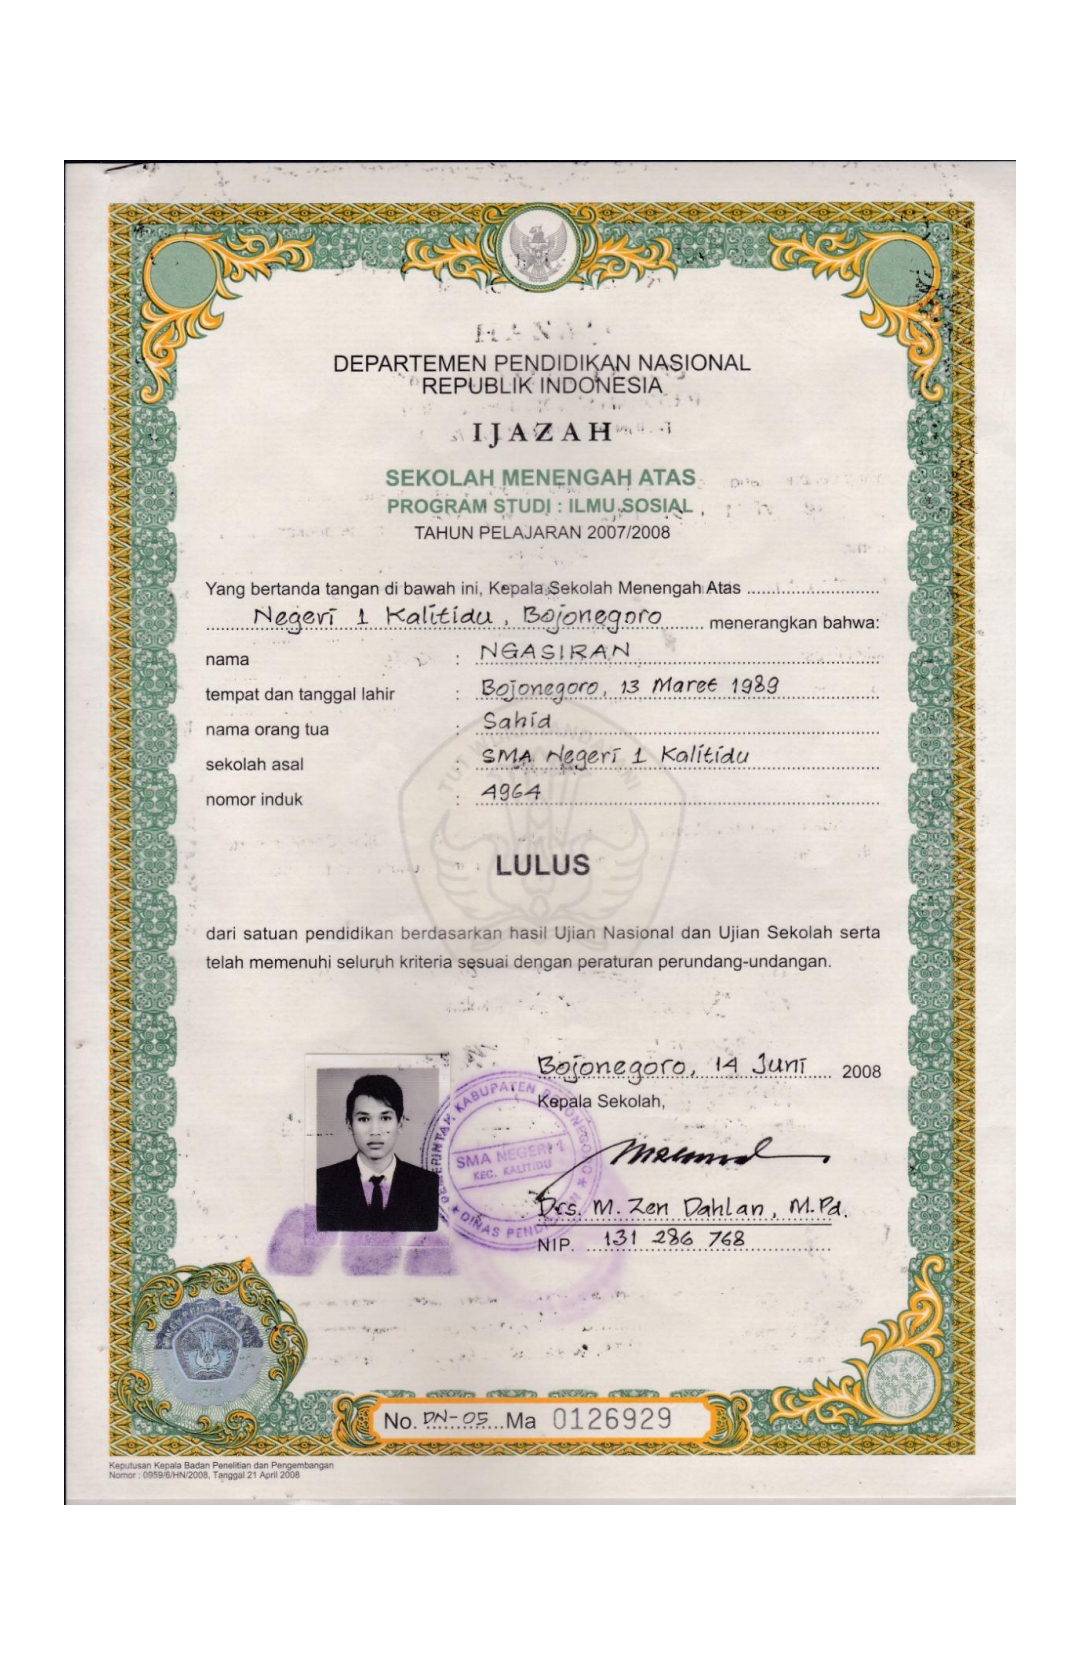 DEPARTEMEN PENDIDIKAN NASIONAL
REPUBLIK INDONESIA
IJAZAH
SEKOLAH MENENGAH ATAS
PROGRAM STUDI : ILMU SOSIAL
TAHUN PELAJARAN 2007/2008
Yang bertanda tangan di bawah ini, Kepala Sekolah Menengah Atas
Negeri 1 Kalitidu, Bojonegoro menerangkan bahwa:
nama : NGASIRAN
tempat dan tanggal lahir : Bojonegoro, 13 Maret 1989
nama orang tua : Sahid
sekolah asal : SMA Negeri 1 Kalitidu
nomor induk : 4964
TUT WURI HANDAYANI
LULUS
dari satuan pendidikan berdasarkan hasil Ujian Nasional dan Ujian Sekolah serta
telah memenuhi seluruh kriteria sesuai dengan peraturan perundang-undangan.
Bojonegoro, 14 Juni 2008
Kepala Sekolah,
PEMERINTAH KABUPATEN BOJONEGORO
SMA NEGERI 1
KEC. KALITIDU
DINAS
Drs. M. Zen Dahlan, M.Pd.
NIP. 131 286 768
No. DN-05 Ma 0126929
Keputusan Kepala Badan Penelitian dan Pengembangan
Nomor : 0959/6/HN/2008, Tanggal 21 April 2008